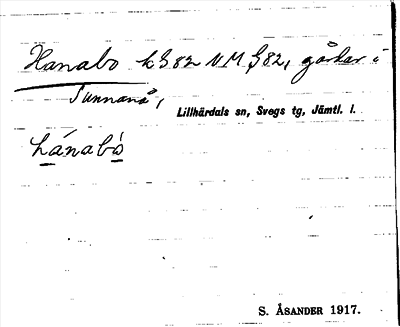 Hanabo k S 82 N.M. S 82, gårdar i
Tunnanå,
Lillhärdals sn, Svegs tg, Jämtl. l.
hánabò
S. ÅSANDER 1917.